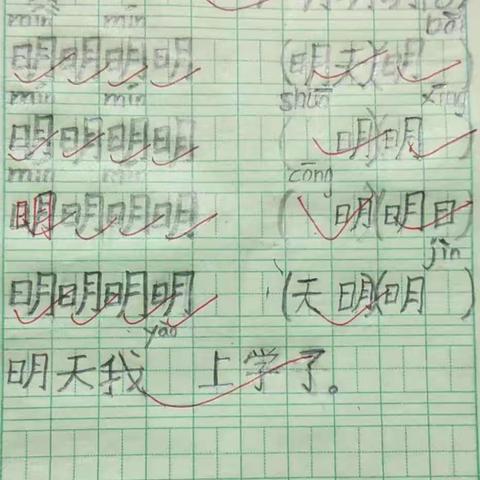 mín mín bāi
明明明明 (明天)(明 )
mín mín shuō xīng
明明明明 ( 明)(明 )
mín mín cōng
明明明明 ( 明)(明日)
jìn
明明明明 (天明)(明 )
yào
明天我 上学了。